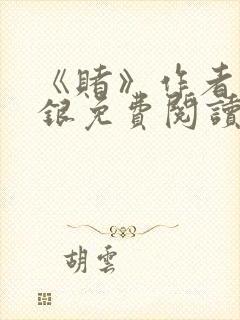 《賭》作者
銀免費閱讀
胡雲